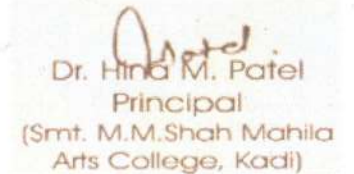 Dr. Hina M. Patel
Principal
(Smt. M.M.Shah Mahila
Arts College, Kadi)